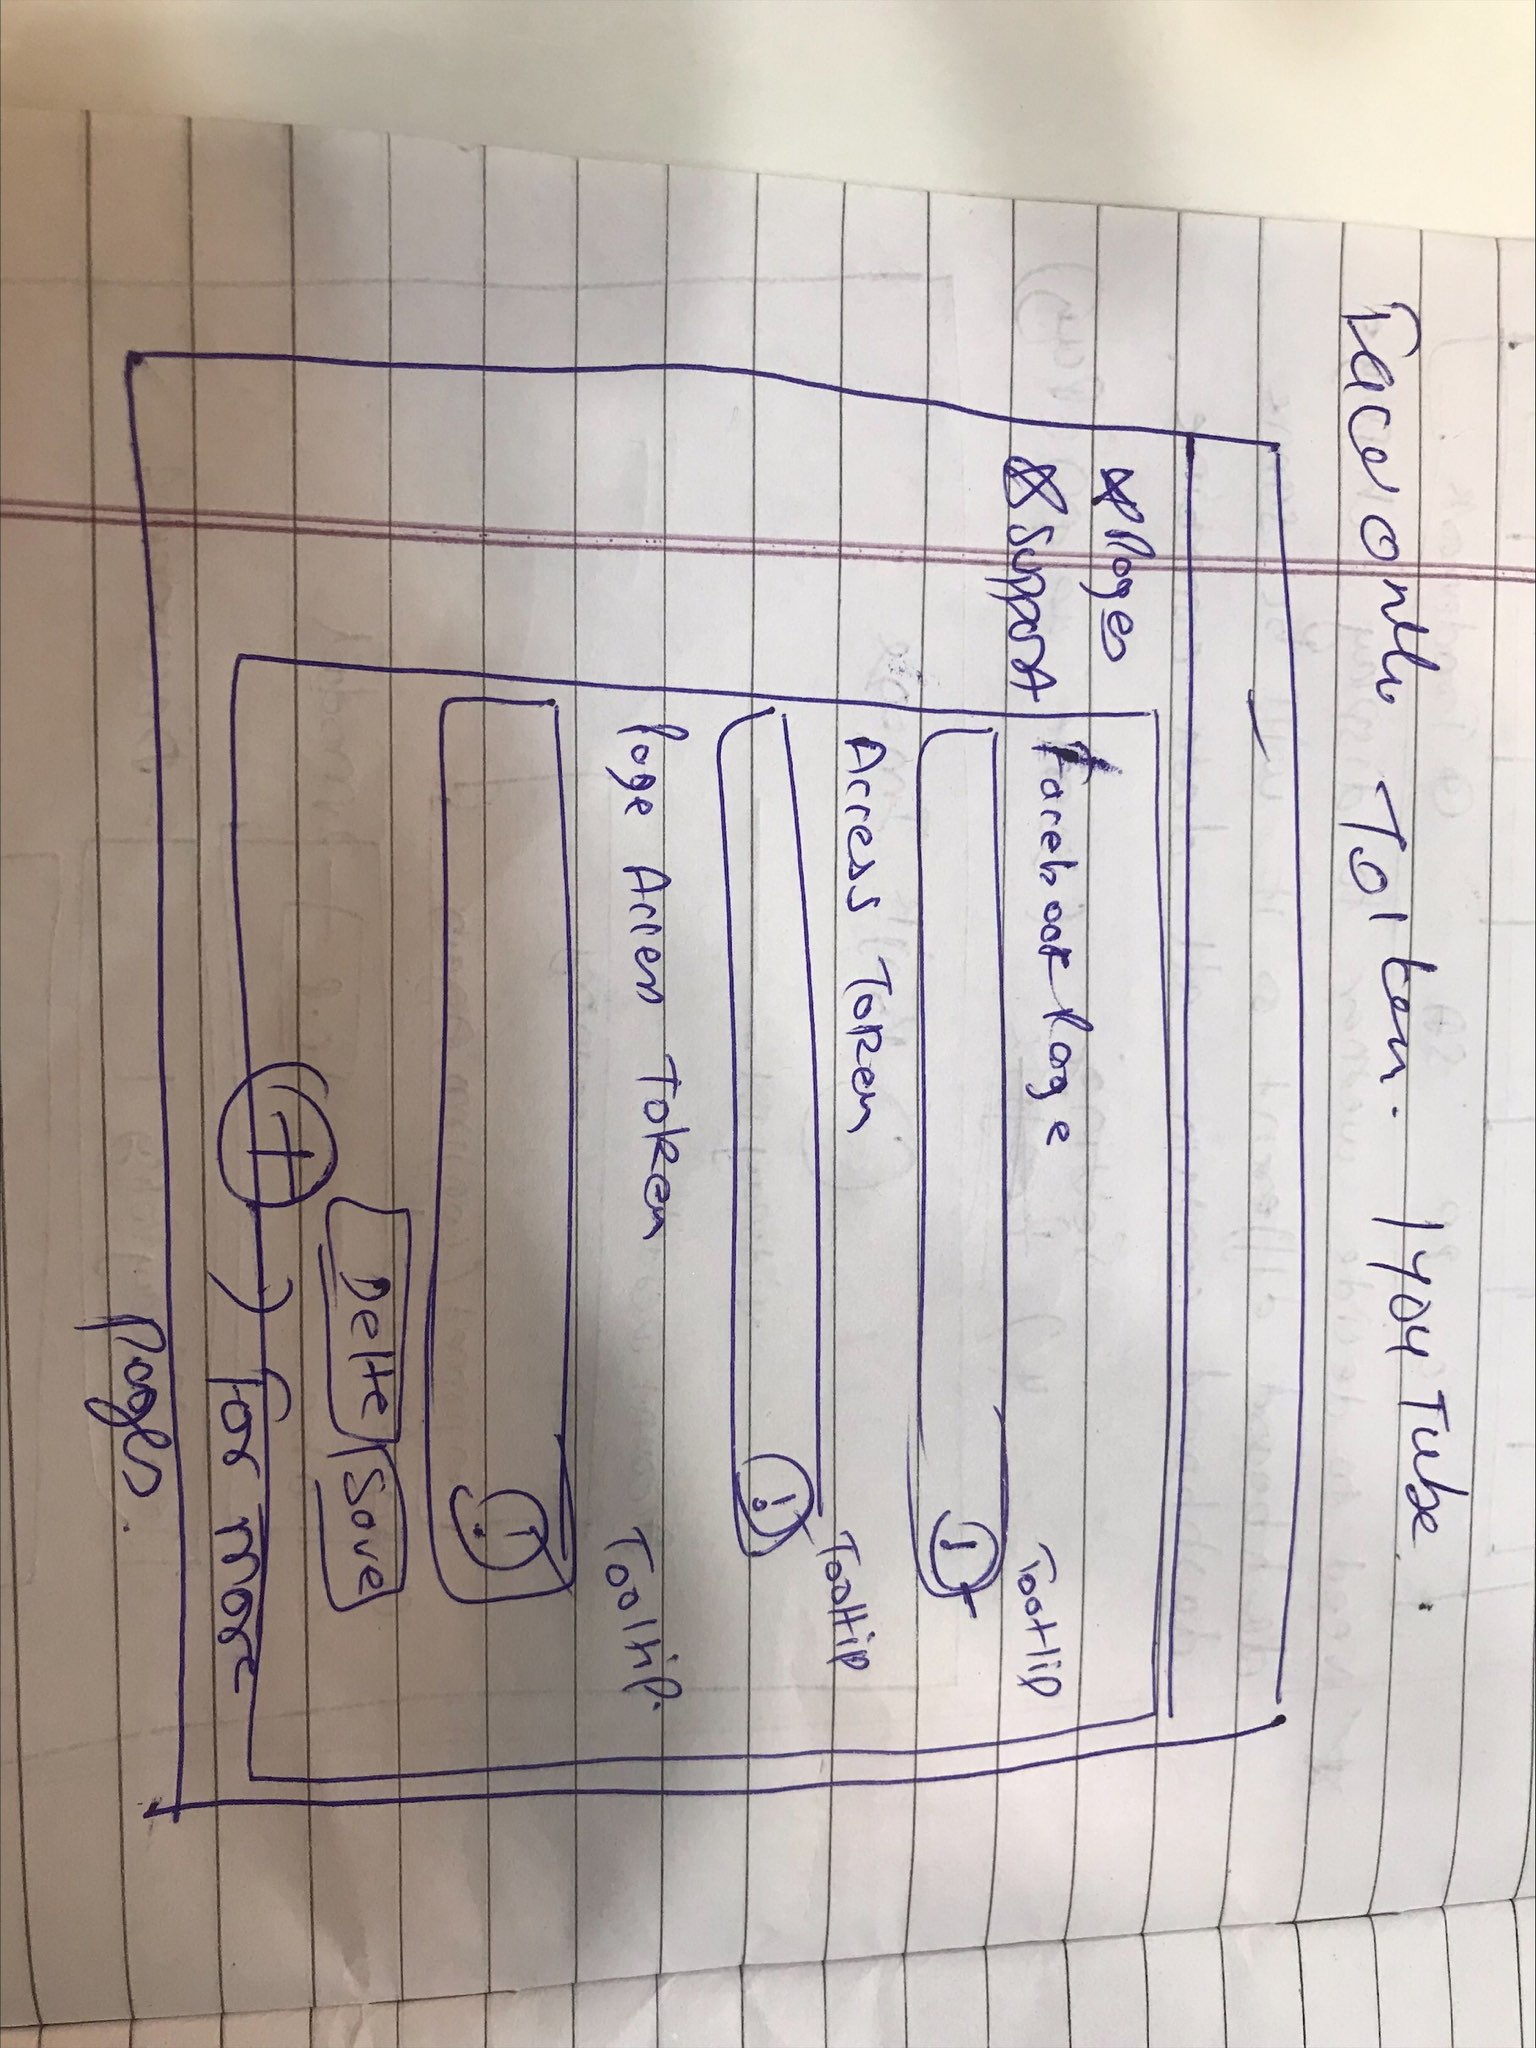 * Pages
Support
Facebook Page
Tooltip
!
Access Token
Tooltip
!
Page Access Token
Tooltip.
!
Delte
Save
+
for more
pages.